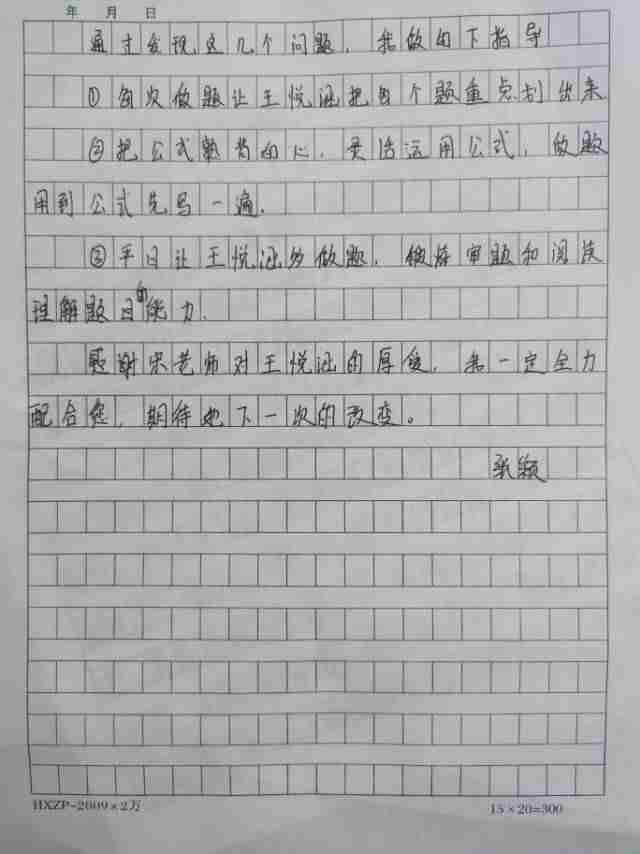 年 月 日
通过发现这几个问题，我做如下指导
①每次做题让王悦涵把每个题重点划出来
②把公式熟背如心，灵活运用公式，做题
用到公式先写一遍.
③平日让王悦涵多做题，锻炼审题和阅读
理解题目的能力.
感谢宋老师对王悦涵的厚爱，我一定全力
配合您，期待她下一次的改变。
HXZP-2009×2万
15×20=300